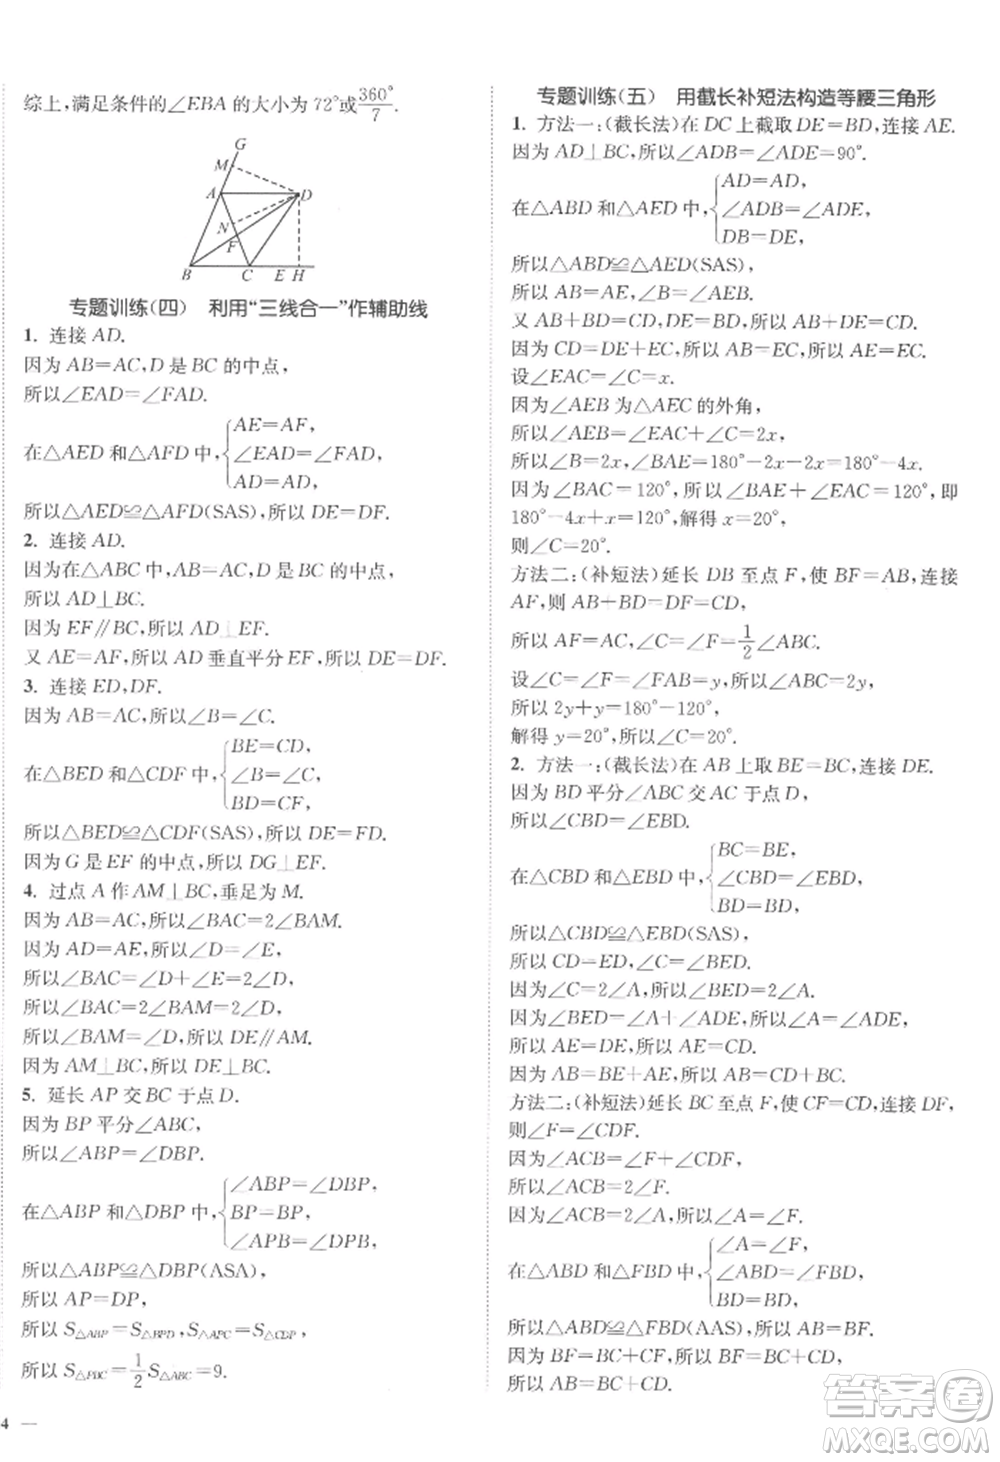 综上,满足条件的∠EBA 的大小为 72°或360°/7.
G
M
A
D
N
F
B
C
E
H
专题训练(四) 利用“三线合一”作辅助线
1. 连接 AD.
因为 AB=AC,D 是 BC 的中点,
所以∠EAD=∠FAD.
在△AED 和△AFD 中,{AE=AF,
∠EAD=∠FAD,
AD=AD,
所以△AED≌△AFD(SAS),所以 DE=DF.
2. 连接 AD.
因为在△ABC 中,AB=AC,D 是 BC 的中点,
所以 AD⊥BC.
因为 EF∥BC,所以 AD⊥EF.
又 AE=AF,所以 AD 垂直平分 EF,所以 DE=DF.
3. 连接 ED,DF.
因为 AB=AC,所以∠B=∠C.
在△BED 和△CDF 中,{BE=CD,
∠B=∠C,
BD=CF,
所以△BED≌△CDF(SAS),所以 DE=FD.
因为 G 是 EF 的中点,所以 DG⊥EF.
4. 过点 A 作 AM⊥BC,垂足为 M.
因为 AB=AC,所以∠BAC=2∠BAM.
因为 AD=AE,所以∠D=∠E,
所以∠BAC=∠D+∠E=2∠D,
所以∠BAC=2∠BAM=2∠D,
所以∠BAM=∠D,所以 DE∥AM.
因为 AM⊥BC,所以 DE⊥BC.
5. 延长 AP 交 BC 于点 D.
因为 BP 平分∠ABC,
所以∠ABP=∠DBP.
在△ABP 和△DBP 中,{∠ABP=∠DBP,
BP=BP,
∠APB=∠DPB,
所以△ABP≌△DBP(ASA),
所以 AP=DP,
所以 S△ABP=S△BPD,S△APC=S△CDP,
所以 S△PBC=1/2 S△ABC=9.
4 —
专题训练(五) 用截长补短法构造等腰三角形
1. 方法一:(截长法)在 DC 上截取 DE=BD,连接 AE.
因为 AD⊥BC,所以∠ADB=∠ADE=90°.
在△ABD 和△AED 中,{AD=AD,
∠ADB=∠ADE,
DB=DE,
所以△ABD≌△AED(SAS),
所以∠B=∠AED,AE=AB.
又 AB+BD=CD,BD=DE,所以 AB+DE=CD.
因为 CD=DE+EC,所以 AB=EC,所以 AE=EC.
设∠EAC=∠C=x.
因为∠AEB 为△AEC 的外角,
所以∠AEB=∠EAC+∠C=2x,
所以∠B=2x,∠BAE=180°-2x-2x=180°-4x.
因为∠BAC=120°,所以∠BAE+∠EAC=120°,即
180°-4x+x=120°,解得 x=20°,
则∠C=20°.
方法二:(补短法)延长 DB 至点 F,使 BF=AB,连接
AF,则 AB+BD=DF=CD,
所以 AF=AC,∠C=∠F=1/2∠ABC.
设∠C=∠F=∠FAB=y,所以∠ABC=2y,
所以 2y+y=180°-120°,
解得 y=20°,所以∠C=20°.
2. 方法一:(截长法)在 AB 上取 BE=BC,连接 DE.
因为 BD 平分∠ABC 交 AC 于点 D,
所以∠CBD=∠EBD.
在△CBD 和△EBD 中,{BC=BE,
∠CBD=∠EBD,
BD=BD,
所以△CBD≌△EBD(SAS),
所以 CD=ED,∠C=∠BED.
因为∠C=2∠A,所以∠BED=2∠A.
因为∠BED=∠A+∠ADE,所以∠A=∠ADE,
所以 AE=DE,所以 AE=CD.
因为 AB=BE+AE,所以 AB=BC+CD.
方法二:(补短法)延长 BC 至点 F,使 CF=CD,连接 DF,
则∠F=∠CDF.
因为∠ACB=∠F+∠CDF,
所以∠ACB=2∠F.
因为∠ACB=2∠A,所以∠A=∠F.
在△ABD 和△FBD 中,{∠A=∠F,
∠ABD=∠FBD,
BD=BD,
所以△ABD≌△FBD(AAS),所以 AB=FB.
因为 BF=BC+CF,所以 BF=BC+CD,
所以 AB=BC+CD.
答案圈
MXQE.COM